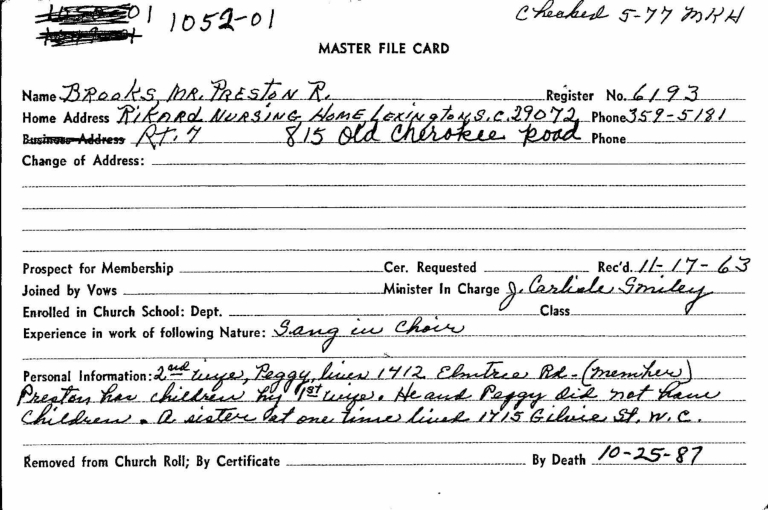 1052-01
Checked 5-77 MKH
MASTER FILE CARD
Name BROOKS, MR. PRESTON R. Register No. 6193
Home Address RIKARD NURSING HOME, LEXINGTON, S.C. 29072 Phone 359-5181
Business Address RT. 7 815 Old Cherokee Road Phone
Change of Address:
Prospect for Membership Cer. Requested Rec'd. 11-17-63
Joined by Vows Minister In Charge J. Carlisle Smiley
Enrolled in Church School: Dept. Class
Experience in work of following Nature: Sang in Choir
Personal Information: 2nd wife, Peggy, lives 1412 Elmtree Rd. - (member)
Preston has children by 1st wife. He and Peggy did not have
children. A sister at one time lived 1715 St. W.C.
Removed from Church Roll; By Certificate By Death 10-25-87